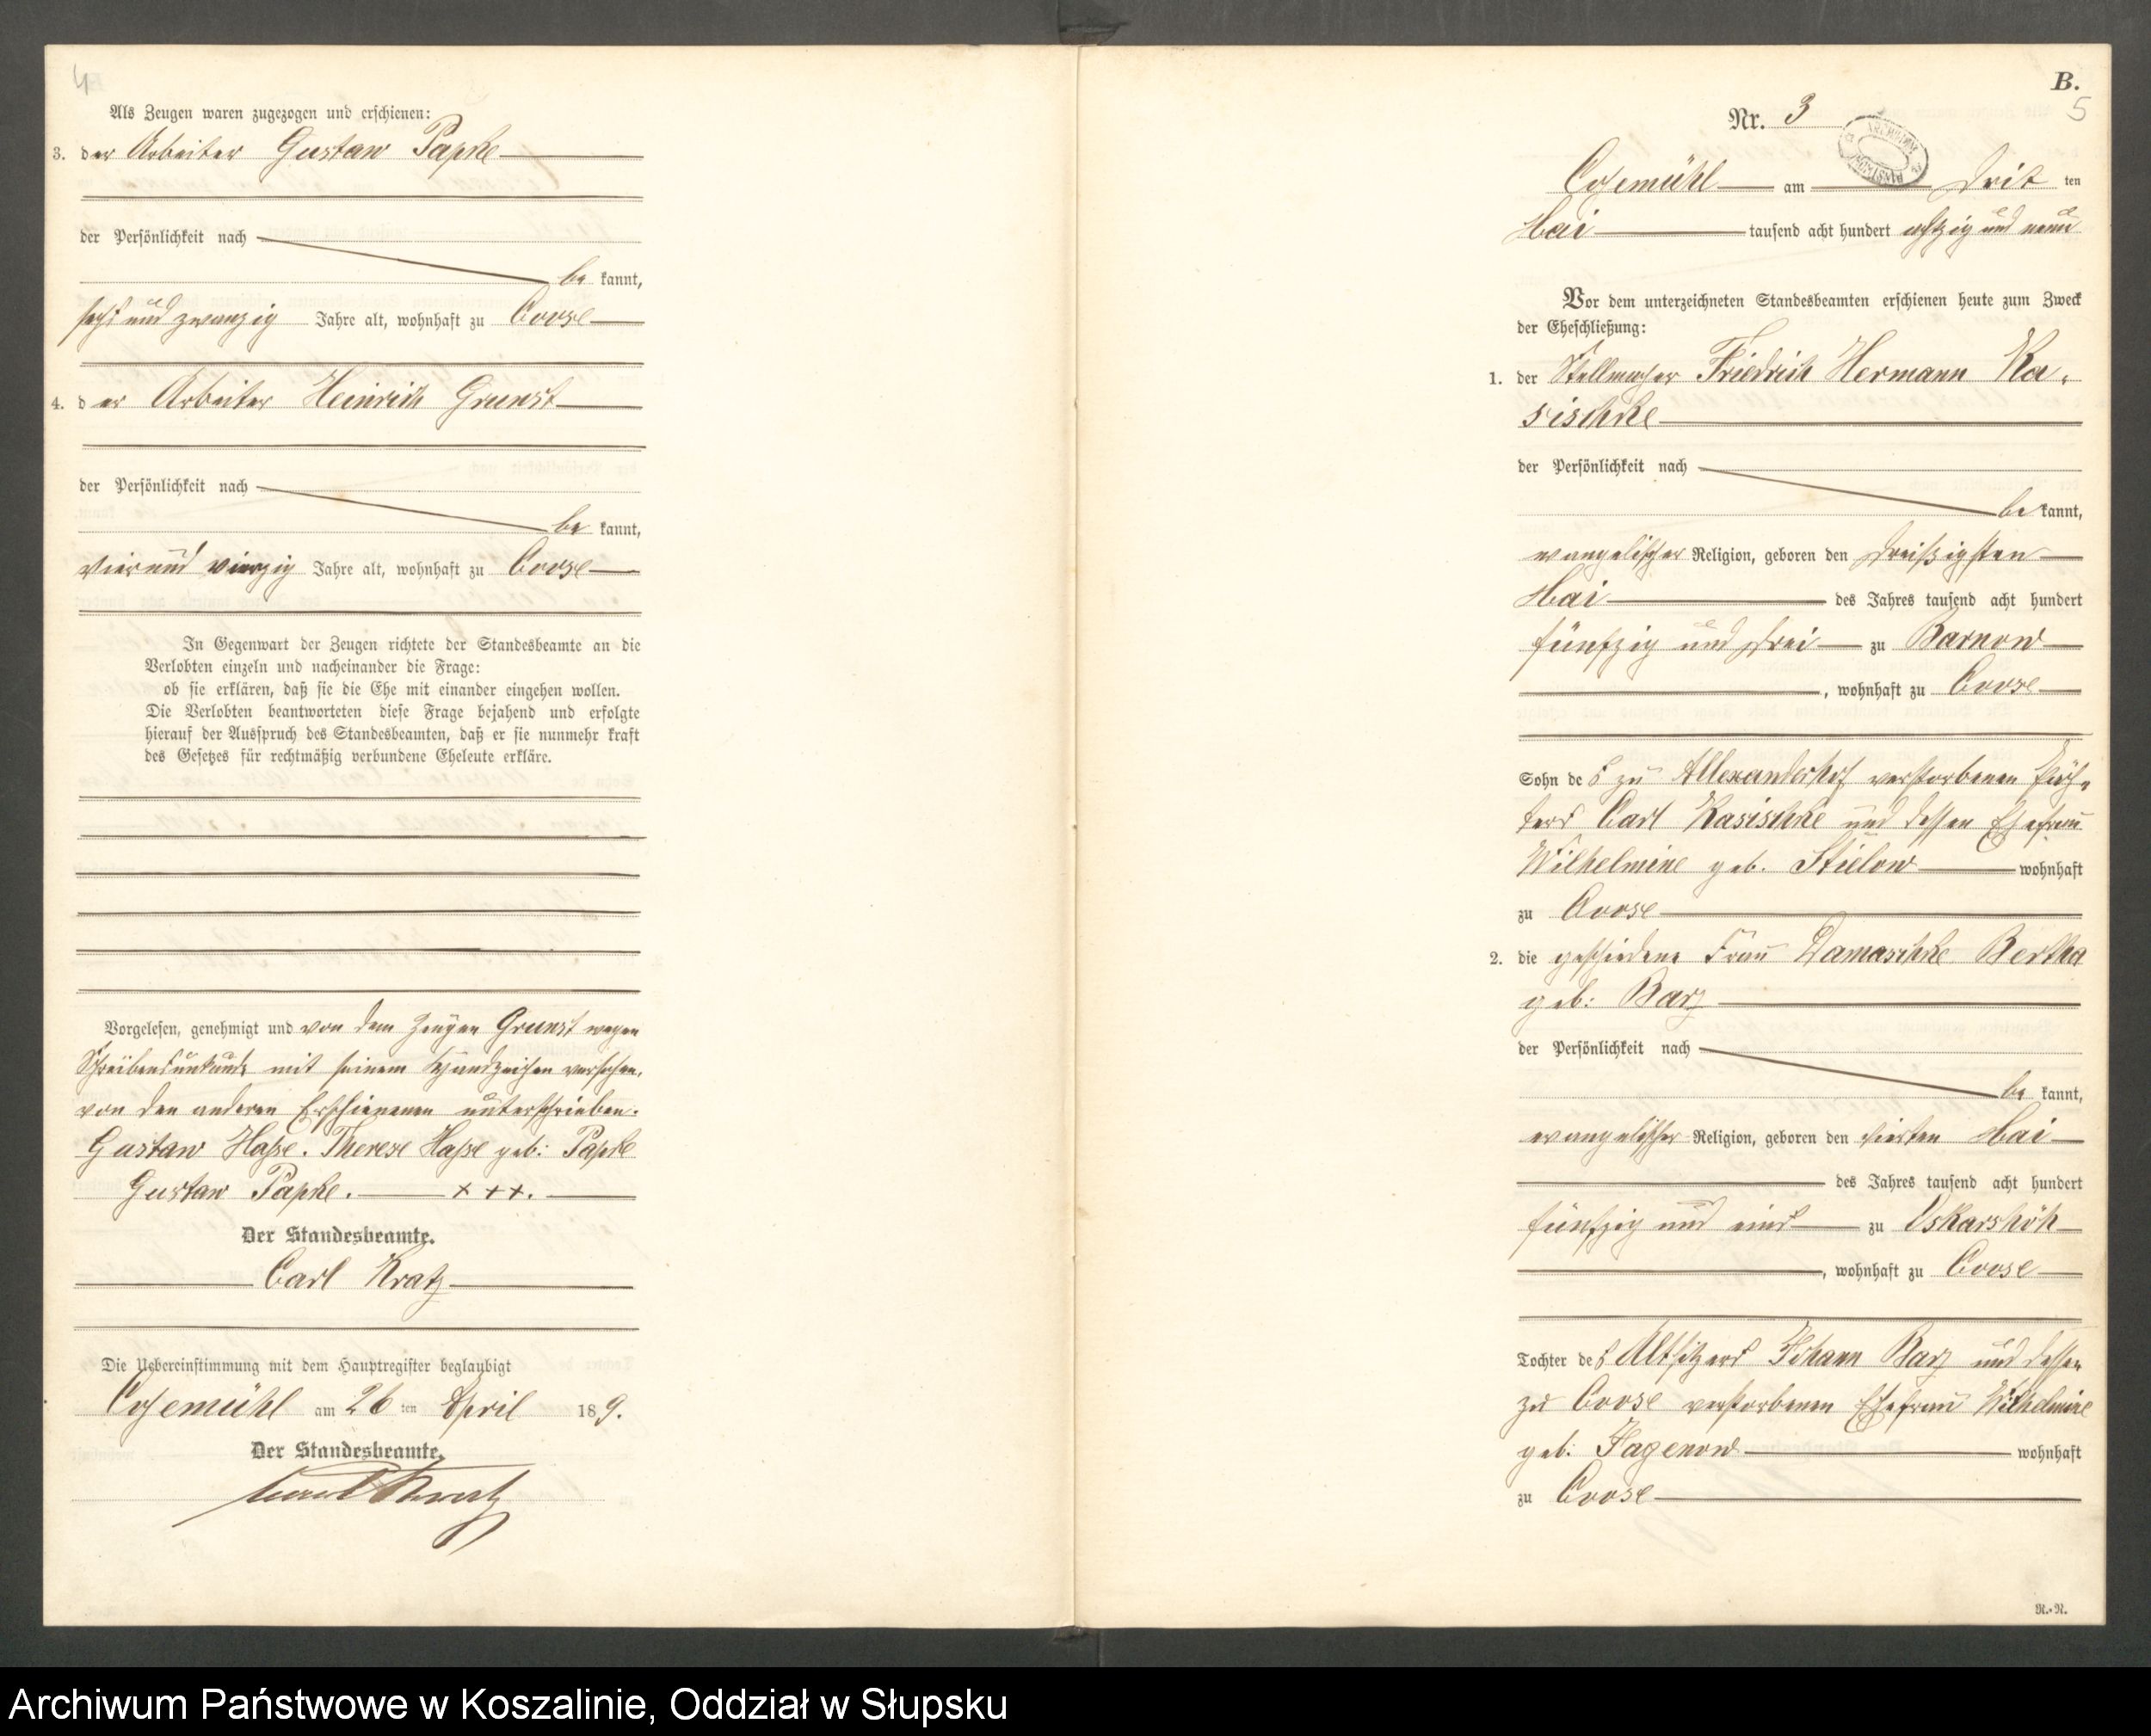 4
Als Zeugen waren zugezogen und erschienen:
3. der Arbeiter Gustav Papke
der Persönlichkeit nach
bekannt,
sechs und zwanzig Jahre alt, wohnhaft zu Coose
4. der Arbeiter Heinrich Grunst
der Persönlichkeit nach
bekannt,
vier und vierzig Jahre alt, wohnhaft zu Coose
In Gegenwart der Zeugen richtete der Standesbeamte an die
Verlobten einzeln und nacheinander die Frage:
ob sie erklären, daß sie die Ehe mit einander eingehen wollen.
Die Verlobten beantworteten diese Frage bejahend und erfolgte
hierauf der Ausspruch des Standesbeamten, daß er sie nunmehr kraft
des Gesetzes für rechtmäßig verbundene Eheleute erkläre.
Vorgelesen, genehmigt und von dem Zeugen Grunst wegen
Schreibensunkunde mit seinem Handzeichen versehen,
von den anderen Erschienenen unterschrieben.
Gustav Hasse. Therese Hasse geb: Papke
Gustav Papke. + + +.
Der Standesbeamte.
Carl Kratz
Die Uebereinstimmung mit dem Hauptregister beglaubigt
Cosemühl am 26 ten April 1889.
Der Standesbeamte.
Carl Kratz
B.
5
Nr. 3
Cosemühl am Drit ten
Mai tausend acht hundert achtzig und neun
Vor dem unterzeichneten Standesbeamten erschienen heute zum Zweck
der Eheschließung:
1. der Stellmacher Friedrich Hermann Ka-
sischke
der Persönlichkeit nach
bekannt,
evangelischer Religion, geboren den dreißigsten
Mai des Jahres tausend acht hundert
fünfzig und drei zu Barnow
, wohnhaft zu Coose
Sohn des zu Allexandershof verstorbenen Päch-
ters Carl Kasischke und dessen Ehefrau
Wilhelmine geb. Stielow wohnhaft
zu Coose
2. die geschiedene Frau Damaschke Bertha
geb: Barz
der Persönlichkeit nach
bekannt,
evangelischer Religion, geboren den vierten Mai
des Jahres tausend acht hundert
fünfzig und eins zu Oskarshöh
, wohnhaft zu Coose
Tochter des Altsitzers Johann Barz und dessen
zu Coose verstorbenen Ehefrau Wilhelmine
geb: Jagenow wohnhaft
zu Coose
R.-N.
Archiwum Państwowe w Koszalinie, Oddział w Słupsku